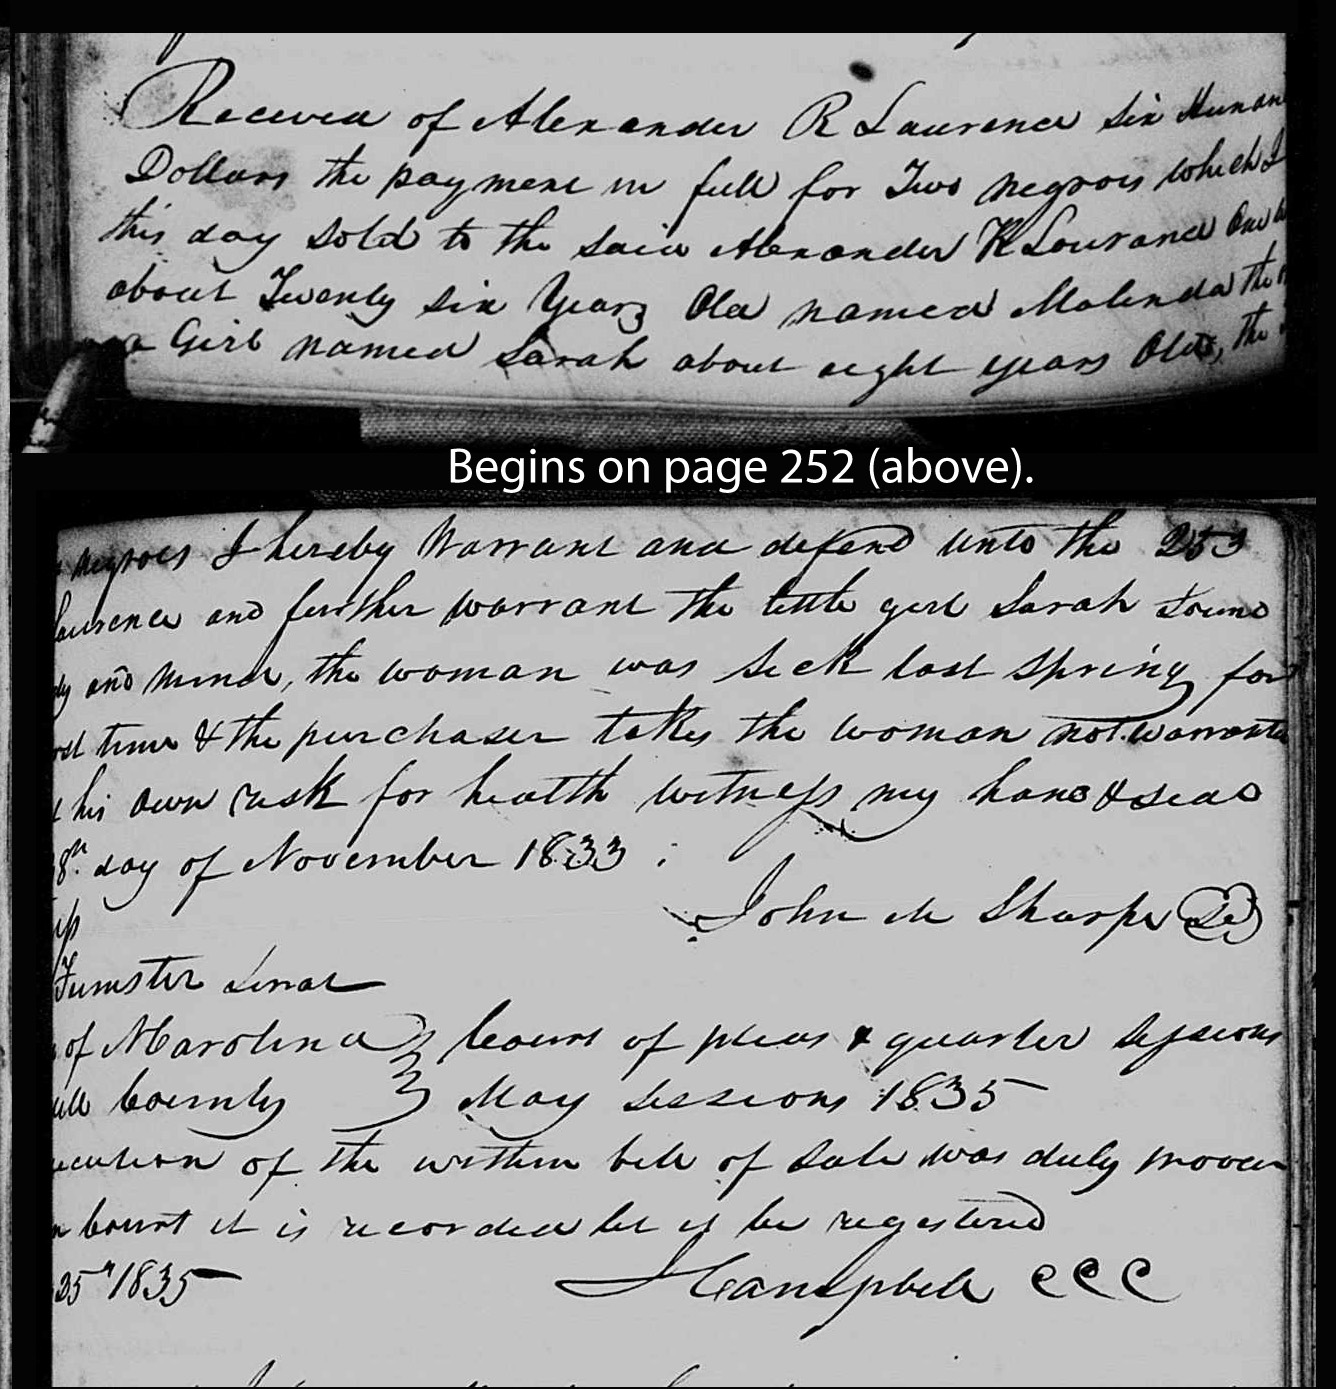 Received of Alexander R Laurence Six Hun
Dollars the payment in full for Two negroes which I
this day sold to the said Alexander R Laurance One
about Twenty six Years Old named Malinda the
a Girl named Sarah about aeght years Old, the
Begins on page 252 (above).
negroes I hereby Warrant and defend unto the 253
aurence and further warrant the little girl Sarah Sound
dy and mind, the woman was sick last spring for
time & the purchaser takes the woman not warrante
his own risk for health witness my hand & seal
8th day of November 1833
John M Sharpe Seal
of N Carolina } Court of pleas & quarter Sessions
ell County } May Sessions 1835
ecution of the within bill of Sale was duly proven
n Court it is recorded let it be registered
25th 1835
J Campbell CCC